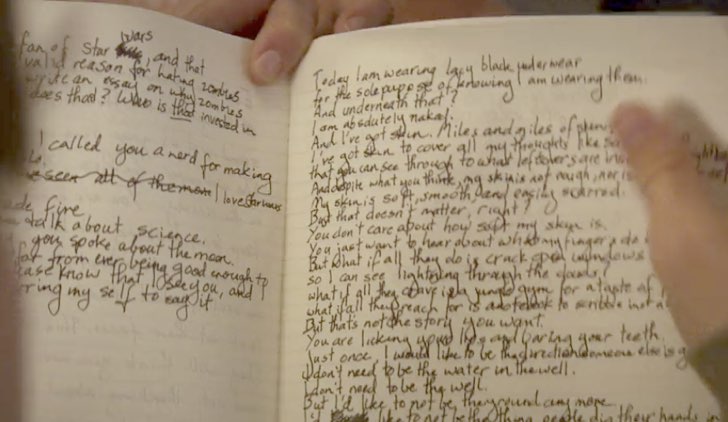 wars
fan of Star, and that
valid reason for hating zombies
write an essay on why zombies
does that? Who is that invested in
I called you a nerd for making
seen all of them I love Star wars
fire
talk about science.
you spoke about the moon.
far from ever being good enough to
know that I see you, and I
my self to say it
Today I am wearing lacy black underwear
for the sole purpose of knowing I am wearing them.
And underneath that?
I am absolutely naked.
And I've got skin. Miles and miles of skin.
I've got skin to cover all my thoughts like
that you can see through to what leftovers are
And despite what you think, my skin is not rough, nor is
My skin is soft, smooth, and easily scarred.
But that doesn't matter, right?
You don't care about how soft my skin is.
You just want to hear about what my fingers do
But what if all they do is crack open windows
so I can see lightning through the clouds?
what if all they crave is a jungle gym for a taste of
what if all they reach for is a notebook to scribble
But that's not the story you want.
You are licking your lips and baring your teeth.
Just once, I would like to be the direction someone else is
I don't need to be the water in the well.
I don't need to be the well.
But I'd like to not be the ground any more.
I'd like to not be the thing people dig their hands in